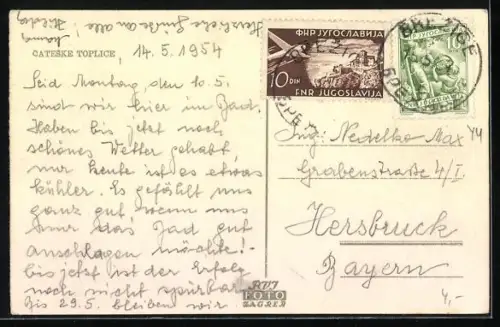 Herzliche Grüße an alle!
ČATEŠKE TOPLICE
14.5.1954
Seid Montag den 10.5.
sind wir hier im Bad.
Haben bis jetzt noch
schönes Wetter gehabt
nur heute ist es etwas
kühler. Es gefällt uns
ganz gut wenn uns
nur das Bad gut
anschlagen möchte!-
bis jetzt ist der Erfolg
noch nicht spürbar.
Bis 29.5. bleiben wir.
ФНР ЈУГОСЛАВИЈА
10 DIN
FNR JUGOSLAVIJA
BREŽICE
10
Ing. Nedelko Max
Grabenstraße 4/I.
Hersbruck
Bayern
FOTO
ZAGREB
4,-